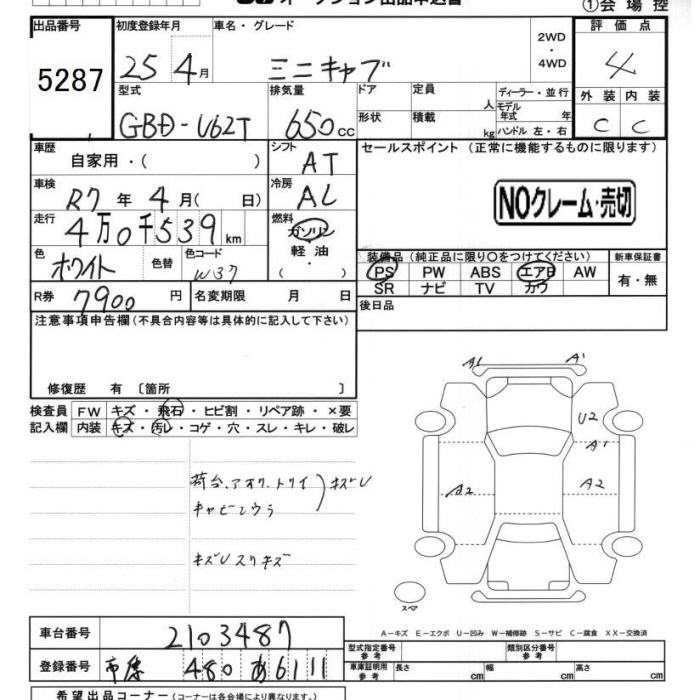 ①会場控
出品番号 5287
初度登録年月 25 4月
車名・グレード ミニキャブ
2WD・4WD
評価点 4
外装 内装
C C
型式 GBD-U62T
排気量 650cc
ドア 形状
定員 人
積載 kg
ディーラー・並行
モデル年式 年
ハンドル 左・右
車歴 自家用・( )
シフト AT
セールスポイント (正常に機能するものに限ります)
車検 R7年 4月 ( 日)
冷房 AC
NOクレーム・売切
走行 4万0千539km
燃料 ガソリン・軽油・( )
色 ホワイト 色替
色コード W37
装備品(純正品に限り○をつけてください)
PS PW ABS エアB AW
SR ナビ TV カワ
新車保証書 有・無
R券 7900円
名変期限 月 日
後日品
注意事項申告欄(不具合内容等は具体的に記入して下さい)
修復歴 有 〔箇所 〕
検査員 FW キズ・飛石・ヒビ割・リペア跡・×要
記入欄 内装 キズ・汚レ・コゲ・穴・スレ・キレ・破レ
荷台、アオリ、トリイ キズU
キズUスリキズ
A1 A1
U2
A1
A2 A2
スペア
A-キズ E-エクボ U-凹み W-補修跡 S-サビ C-腐食 XX-交換済
車台番号 2103487
登録番号 480 あ6111
型式指定番号 参考
類別区分番号 参考
車庫証明用 参考 長さ cm 幅 cm 高さ cm
希望出品コーナー(コーナーは各会場により異なります。)